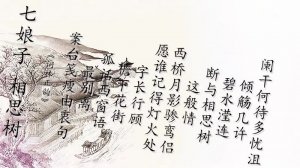 七娘子 相思树
案台笺度由衷句
最别离
孤话西窗语
下花街
字长行顾
愿谁记得灯火处
西桥月影骖鸾侣
这般情
断与相思树
碧水滢连
倾觞几许
阑干何待多忧沮